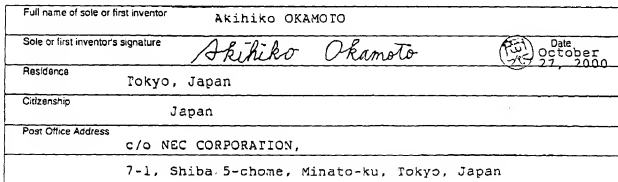 Full name of sole or first inventor Akihiko OKAMOTO
Sole or first inventor's signature Akihiko Okamoto Date
October
27, 2000
Residence
Tokyo, Japan
Citizenship
Japan
Post Office Address
c/o NEC CORPORATION,
7-1, Shiba 5-chome, Minato-ku, Tokyo, Japan